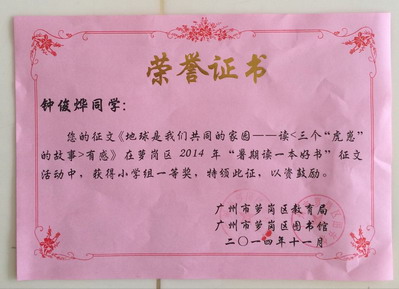 荣誉证书
钟俊烨同学：
您的征文《地球是我们共同的家园——读<三个“虎崽”
的故事>有感》在萝岗区 2014 年“暑期读一本好书”征文
活动中，获得小学组一等奖，特颁此证，以资鼓励。
广州市萝岗区教育局
广州市萝岗区图书馆
二〇一四年十一月